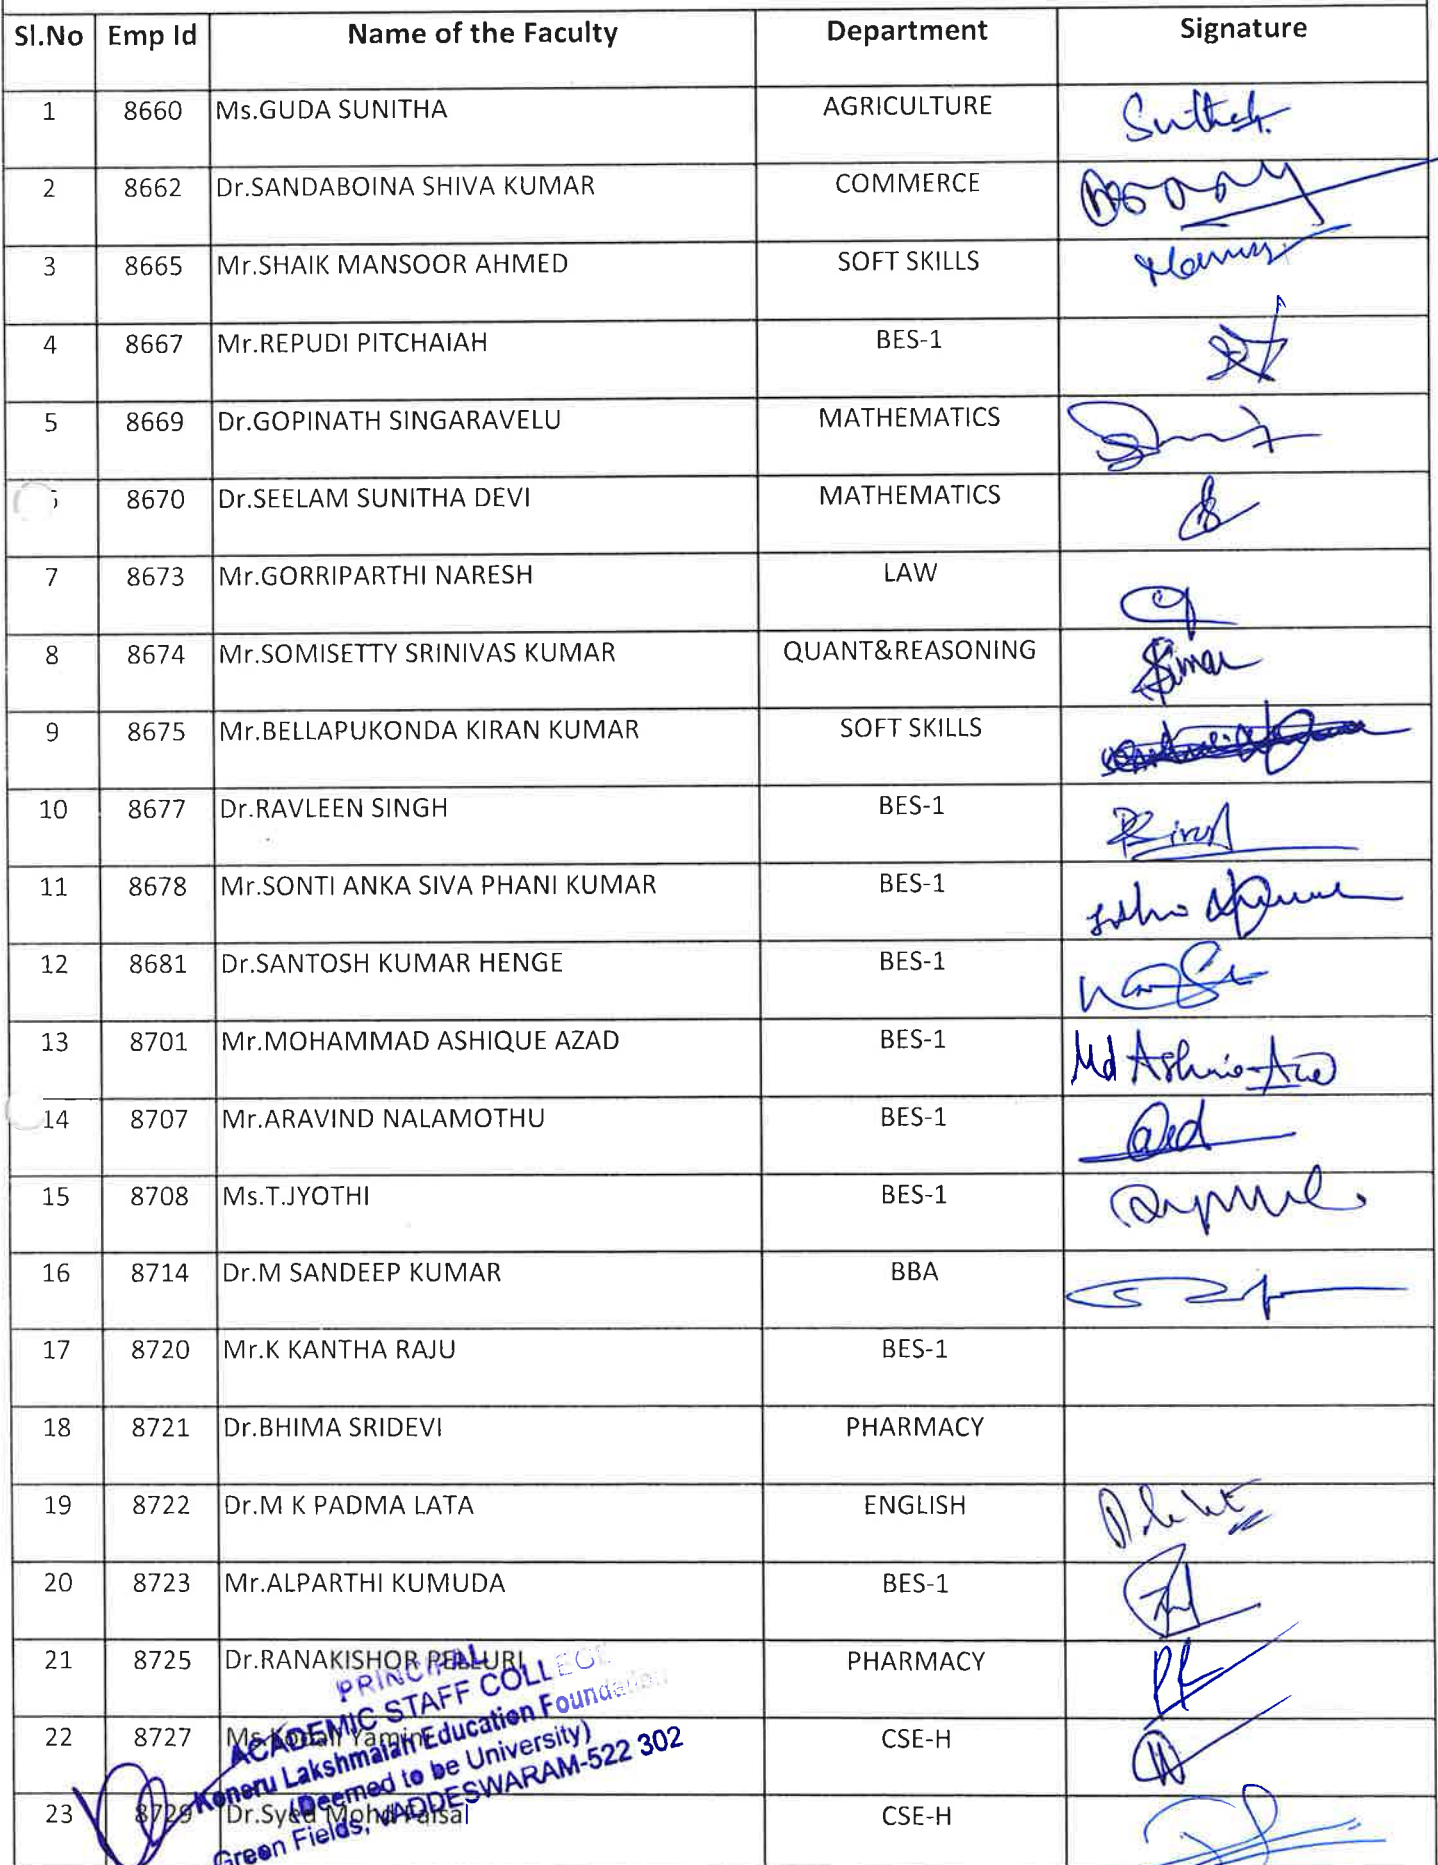 Sl.No Emp Id Name of the Faculty Department Signature
1 8660 Ms.GUDA SUNITHA AGRICULTURE
2 8662 Dr.SANDABOINA SHIVA KUMAR COMMERCE
3 8665 Mr.SHAIK MANSOOR AHMED SOFT SKILLS
4 8667 Mr.REPUDI PITCHAIAH BES-1
5 8669 Dr.GOPINATH SINGARAVELU MATHEMATICS
8670 Dr.SEELAM SUNITHA DEVI MATHEMATICS
7 8673 Mr.GORRIPARTHI NARESH LAW
8 8674 Mr.SOMISETTY SRINIVAS KUMAR QUANT&REASONING
9 8675 Mr.BELLAPUKONDA KIRAN KUMAR SOFT SKILLS
10 8677 Dr.RAVLEEN SINGH BES-1
11 8678 Mr.SONTI ANKA SIVA PHANI KUMAR BES-1
12 8681 Dr.SANTOSH KUMAR HENGE BES-1
13 8701 Mr.MOHAMMAD ASHIQUE AZAD BES-1 Md
14 8707 Mr.ARAVIND NALAMOTHU BES-1
15 8708 Ms.T.JYOTHI BES-1
16 8714 Dr.M SANDEEP KUMAR BBA
17 8720 Mr.K KANTHA RAJU BES-1
18 8721 Dr.BHIMA SRIDEVI PHARMACY
19 8722 Dr.M K PADMA LATA ENGLISH
20 8723 Mr.ALPARTHI KUMUDA BES-1
21 8725 Dr.RANAKISHOR PELLURI PHARMACY
22 8727 Ms Yamini CSE-H
23 8729 Dr.Syed Mohd Faisal CSE-H
PRINCIPAL
ACADEMIC STAFF COLLEGE
Koneru Lakshmaiah Education Foundation
(Deemed to be University)
Green Fields, VADDESWARAM-522 302